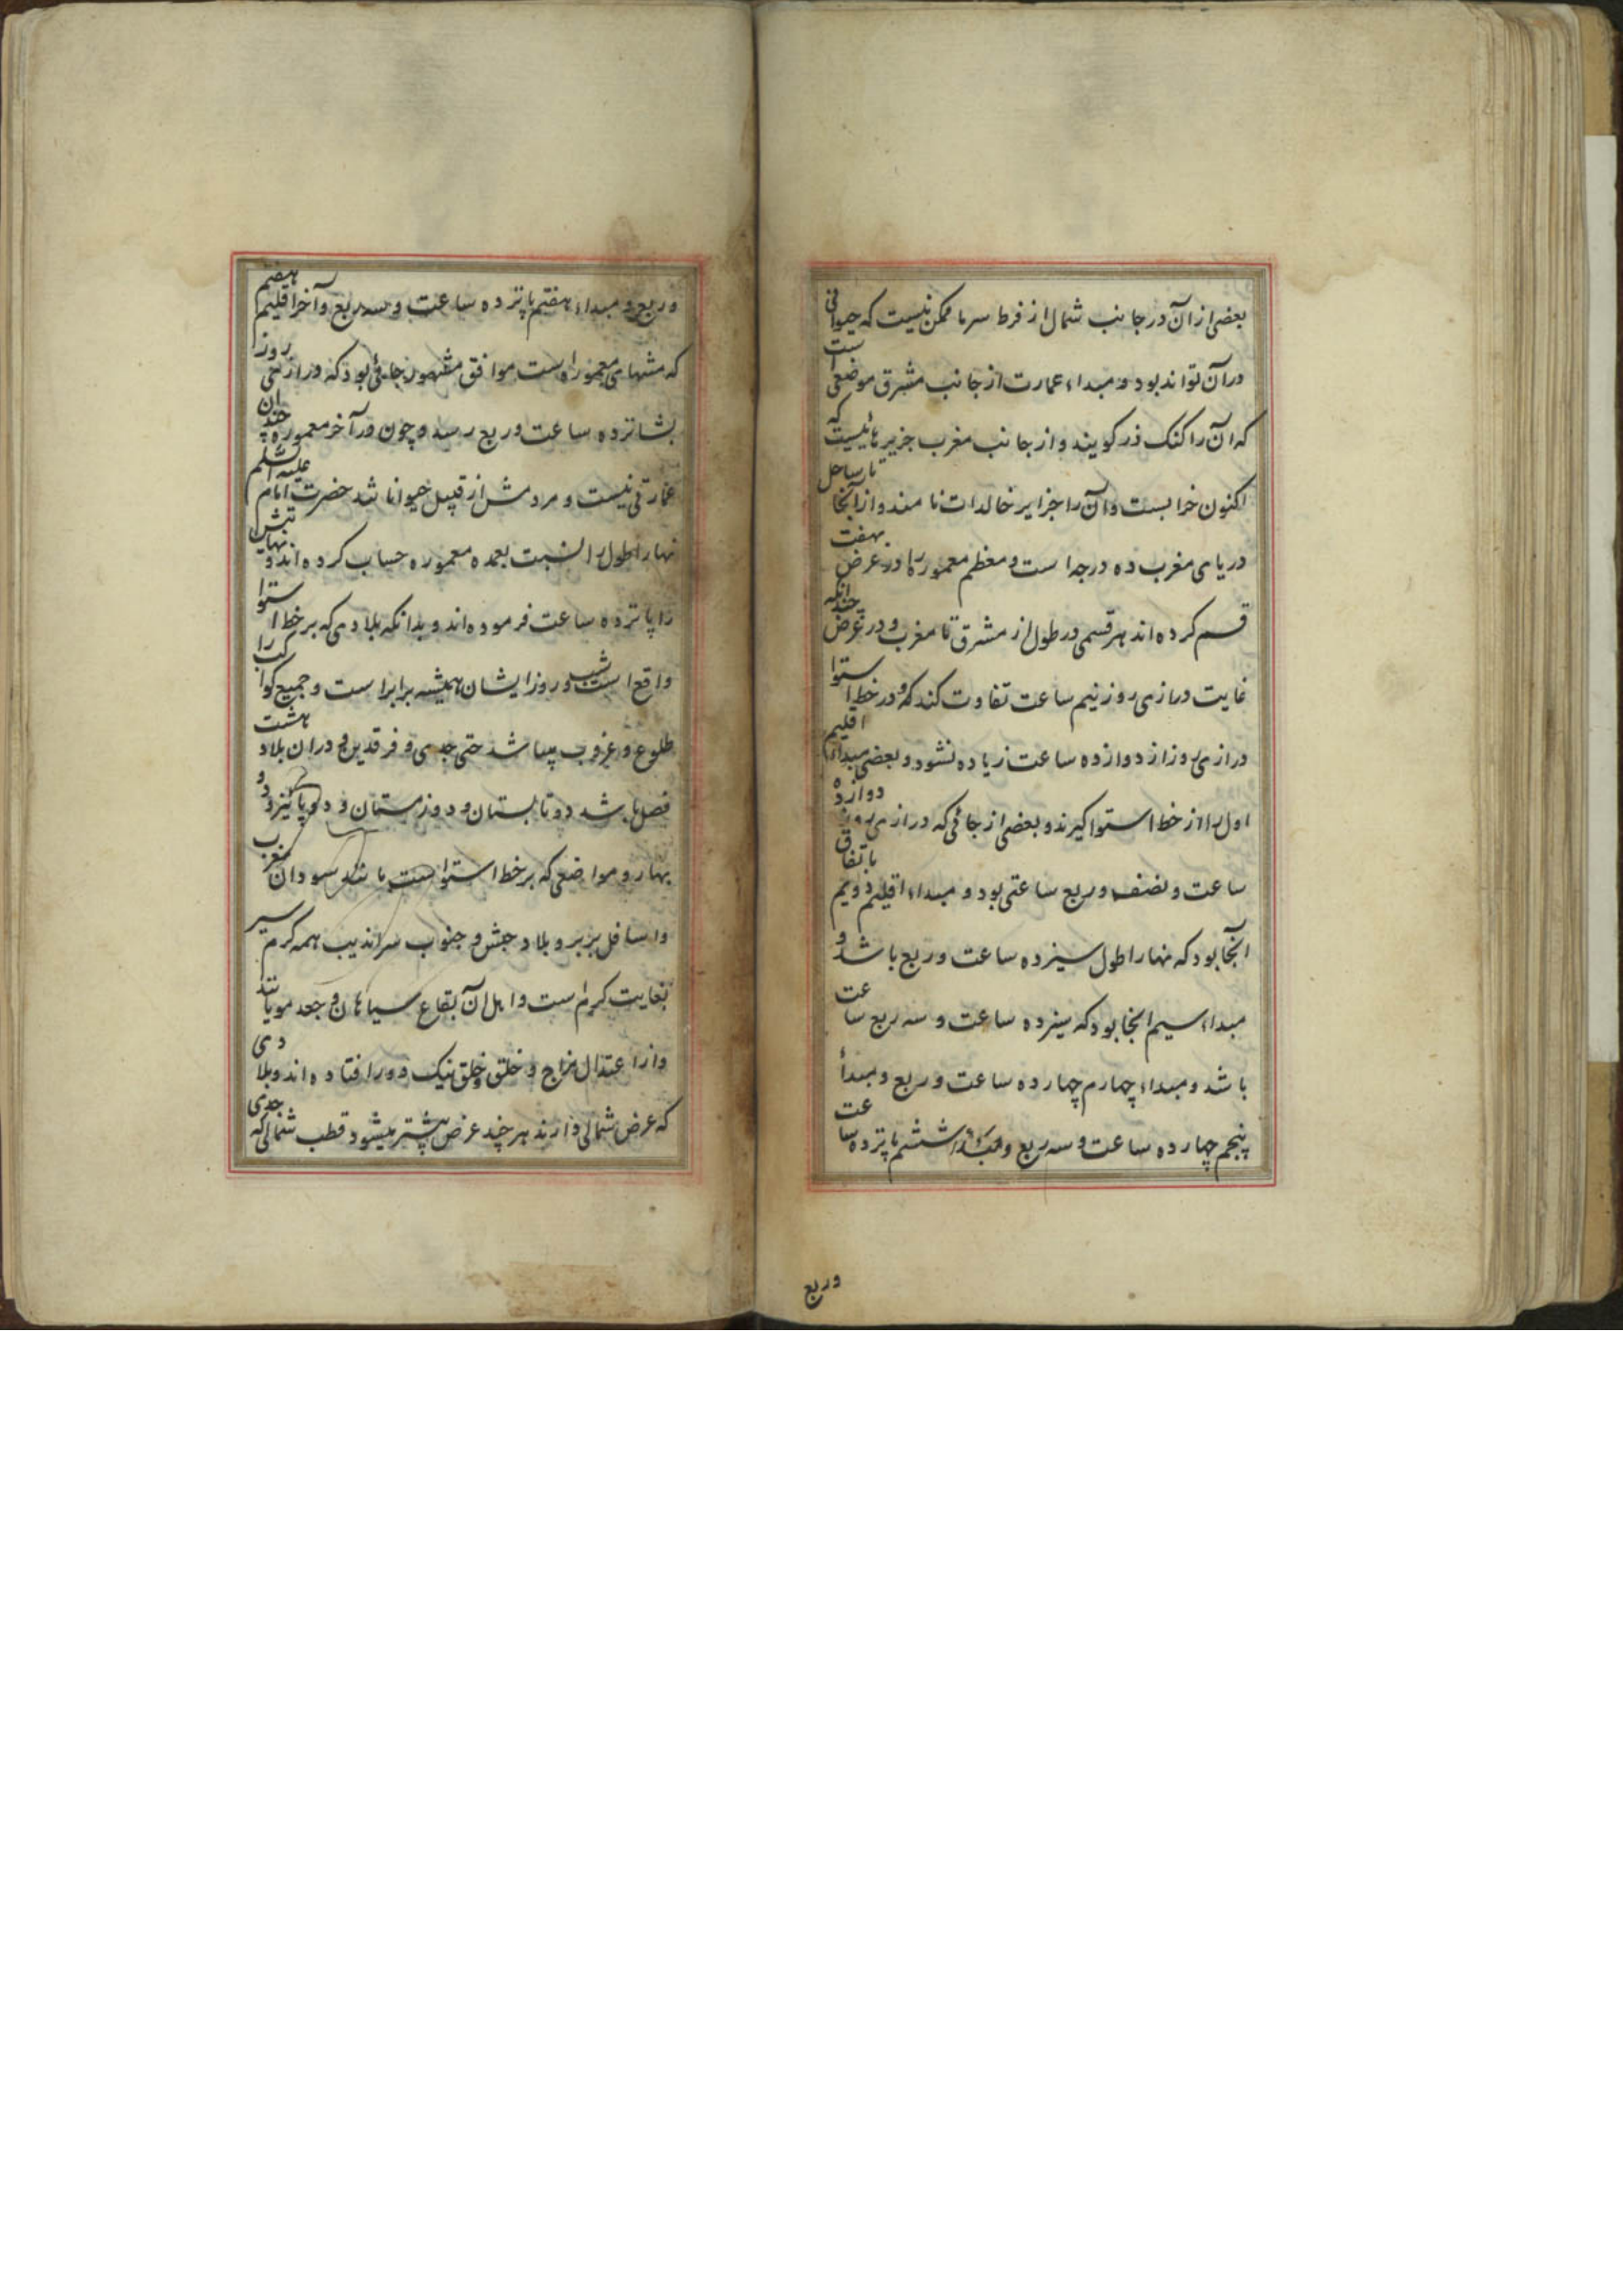 بعضی از آن در جانب شمال از فرط سرما ممکن نیست که حیوانی
در آن تواند بود و مبداء عمارت از جانب مشرق موضعی است
که آن را کنک دز کویند و از جانب مغرب جزیرهائیست که
اکنون خرابست و آن را جزایر خالدات نامند و از آنجا تا ساحل
دریای مغرب ده درجه است و معظم معموره را در عرض بهفت
قسم کرده‌اند هر قسمی در طول از مشرق تا مغرب و در عرض چندانکه
غایت درازی روز نیم ساعت تفاوت کند که در خط استوا
درازی روز از دوازده ساعت زیاده نشود و بعضی مبداء اقلیم
اول را از خط استوا کیرند و بعضی از جائی که درازی روز دوازده
ساعت و نصف و ربع ساعتی بود و مبداء اقلیم دویم باتفاق
آنجا بود که نهار را طول سیزده ساعت و ربع باشد و
مبداء سیم آنجا بود که سیزده ساعت و سه ربع ساعت
باشد و مبداء چهارم چهارده ساعت و ربع و مبدأ
پنجم چهارده ساعت و سه ربع و مبداء ششم پانزده ساعت
وربع
و ربع و مبداء هفتم پانزده ساعت و سه ربع و آخر اقلیم هفتم
که منتهای معموره است موافق مشهور جائی بود که درازی روز
بشانزده ساعت و ربع رسد و چون در آخر معموره چندان
عمارتی نیست و مردمش از قبیل حیوانا شد حضرت امام علیه السلم
نهار را طول را نسبت بعمده معموره حساب کرده‌اند و نهایتش
را پانزده ساعت فرموده‌اند و بدانکه بلادی که بر خط استوا
واقع است شب و روز ایشان همیشه برابر است و جمیع کواکب را
طلوع و غروب میباشد حتی جدی و فرقدین و در آن بلاد هشت
فصل باشد دو تابستان و دو زمستان و دو پائیز و دو
بهار و مواضعی که بر خط استواست سودان مغرب
و اسافل بربر و بلاد حبش و جنوب سراندیب همه کرم سیر
بغایت کرم است و اهل آن بقاع سیاهان و جعد مویانند
و از اعتدال مزاج و خلق و خلق نیک دور افتاده‌اند و بلادی
که عرض شمالی دارند هر چند عرض بیشتر میشود قطب شمالی که جدی